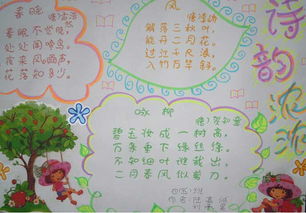 春晓
唐 孟浩然
春眠不觉晓，
处处闻啼鸟，
夜来风雨声，
花落知多少。
风
唐 李峤
解落三秋叶，
能开二月花。
过江千尺浪，
入竹万竿斜。
诗韵
咏柳
唐 贺知章
碧玉妆成一树高，
万条垂下绿丝绦。
不知细叶谁裁出，
二月春风似剪刀。
作者